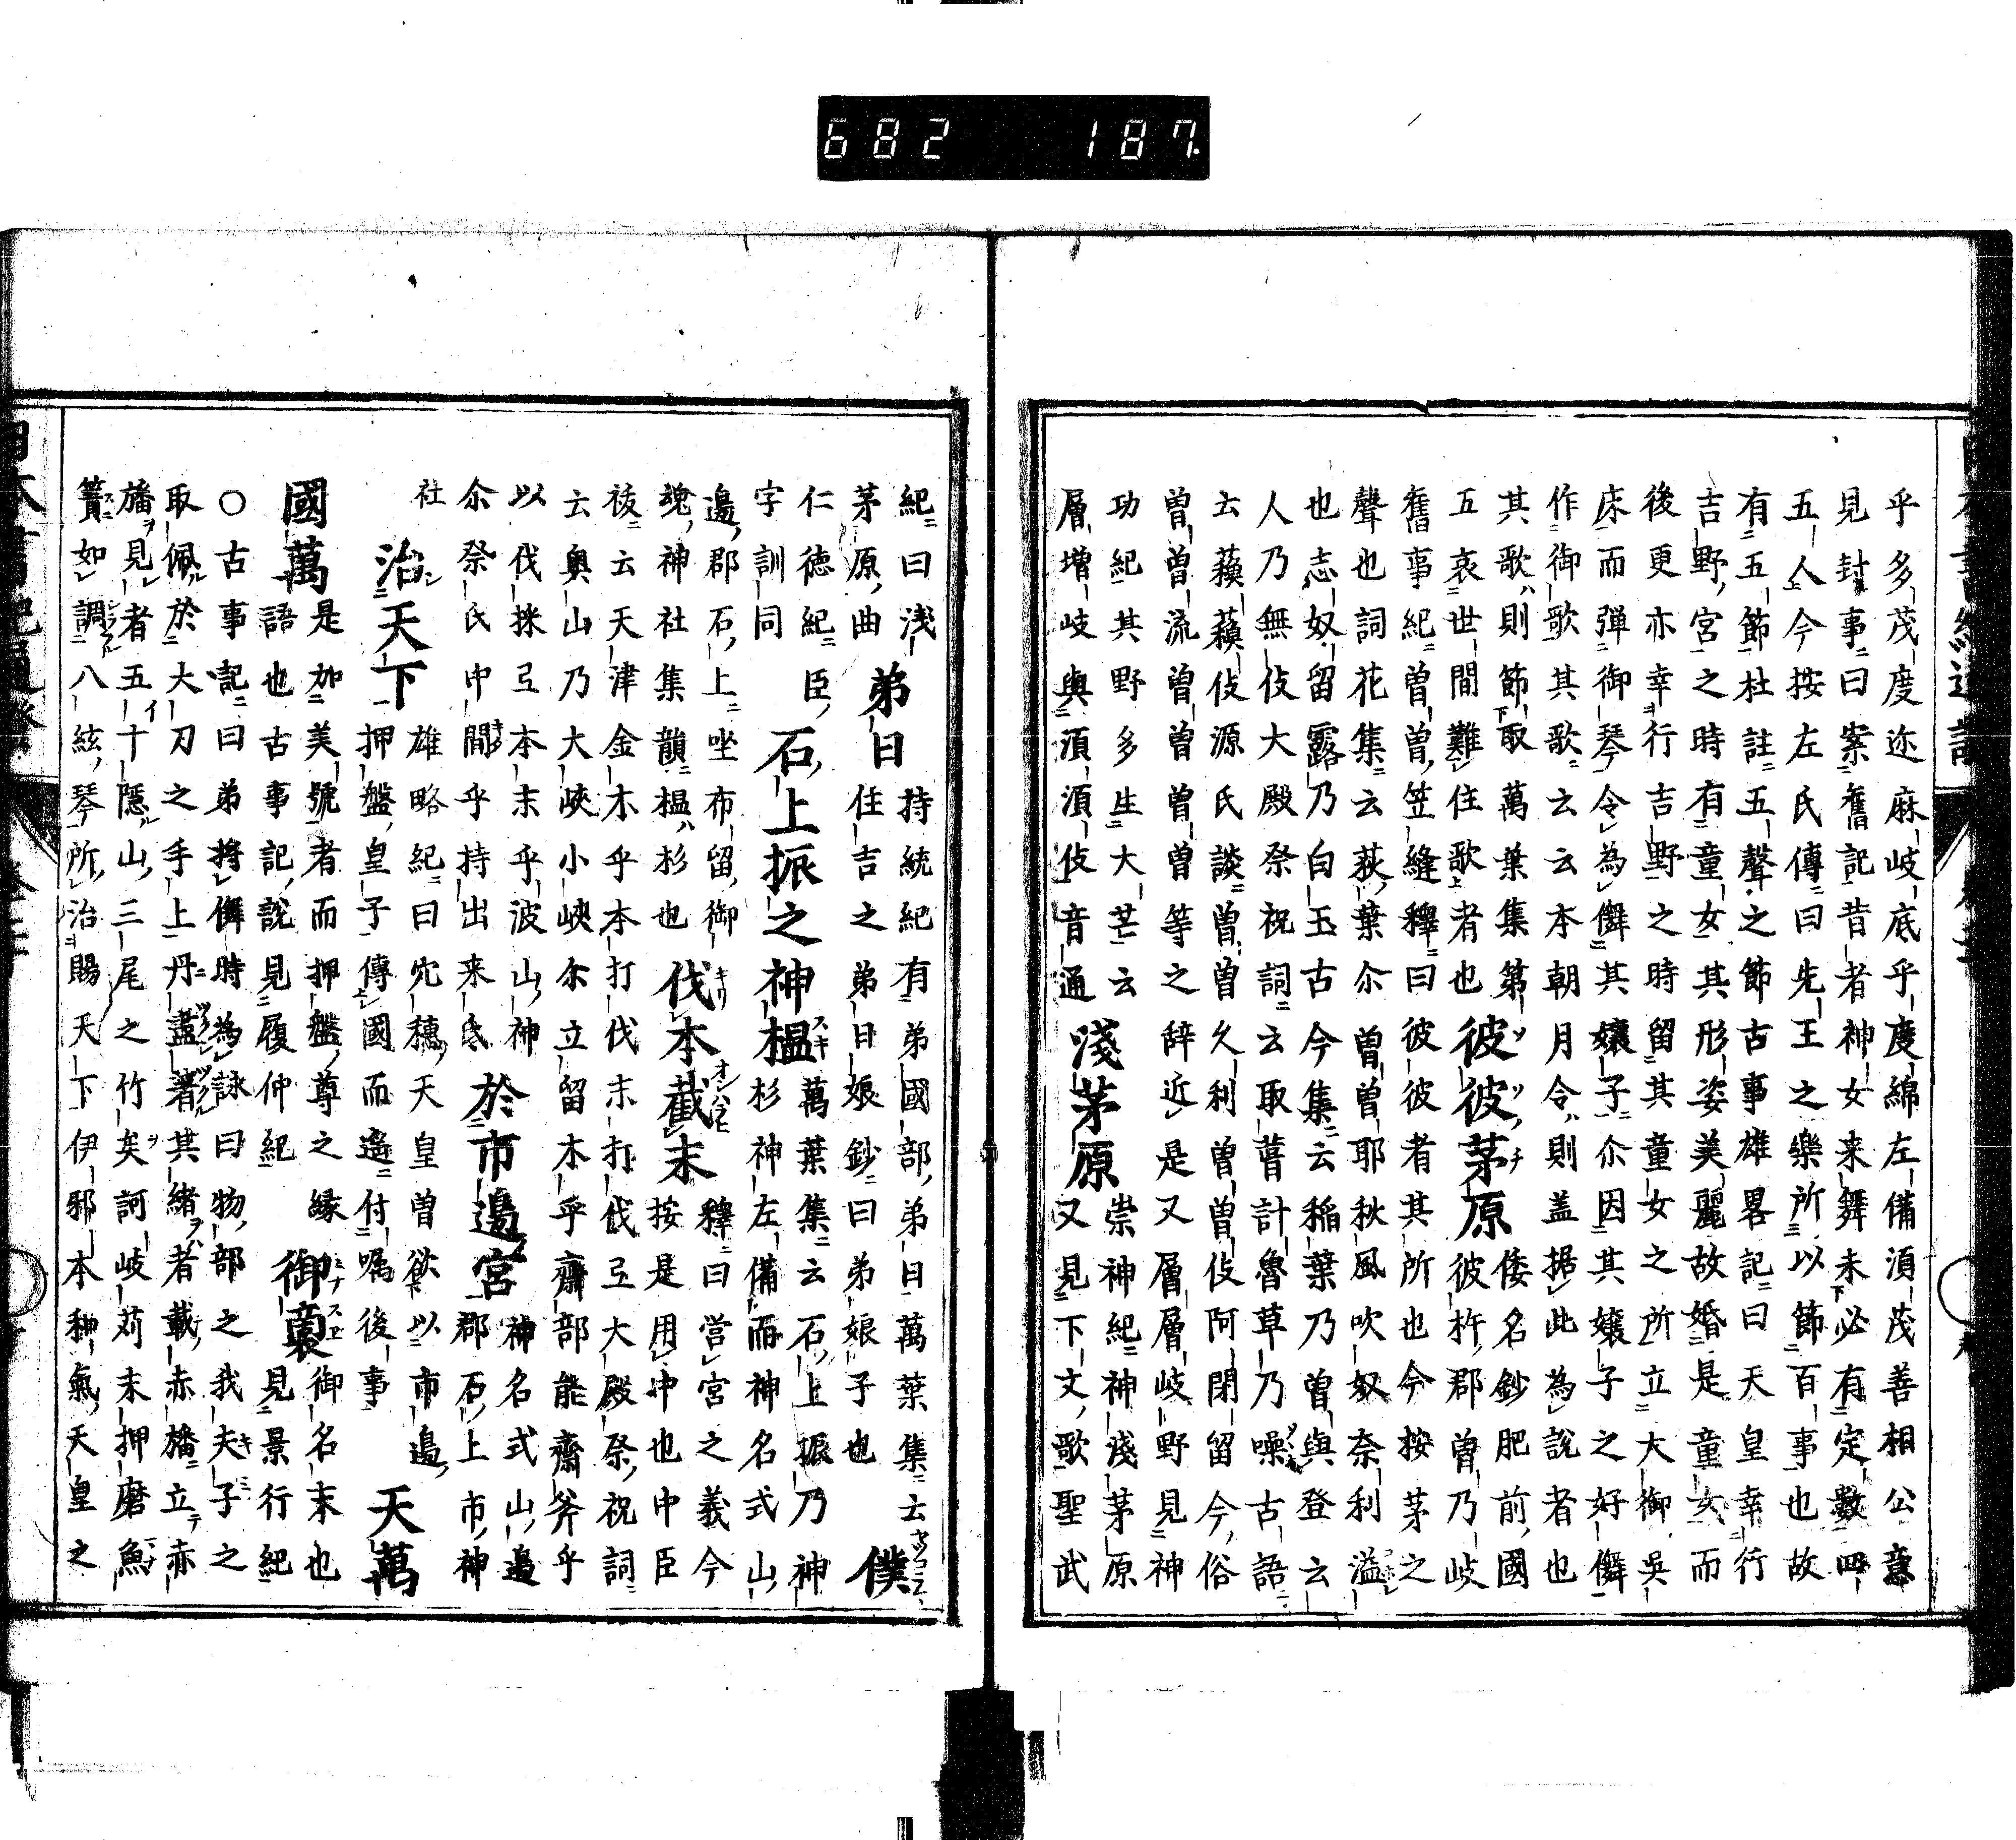 682 187
乎多茂度迩麻岐底乎度綿左備湏茂善相公意
見封事曰案舊記昔者神女来舞未必有定數四
五人今按左氏傳曰先王之樂所以節百事也故
有五節杜註五聲之節古事雄畧記曰天皇幸行
吉野宮之時有童女其形姿美麗故婚是童女而
後更亦幸行吉野之時留其童女之所立大御呉
床而弾御琴令為儛其孃子尒因其孃子之好儛
作御歌其歌云云本朝月令則盖据此為説者也
其歌則節取萬葉集第
五哀世間難住歌者也
彼彼茅原
倭名鈔肥前國
彼杵郡曽乃岐
舊事紀曽曽笠縫釋曰彼彼者其所也今按茅之
聲也詞花集云荻葉尒曽曽耶秋風吹奴奈利溢
也志奴留露乃白玉古今集云稲葉乃曽與登云
人乃無伎大殿祭祝詞云取葺計魯草乃噪古語
云蘓蘓伎源氏談曽曽久利曽曽伎阿閇留今俗
曽曽流曽曽曽曽等之辞近是又層層岐野見神
功紀其野多生大芒云
層増岐與湏湏伎音通
淺茅原
崇神紀神淺茅原
又見下文歌聖武
紀曰浅
茅原曲
弟日
持統紀有弟國部弟日萬葉集云
住吉之弟日娘鈔曰弟娘子也
僕
仁徳紀臣
字訓同
石上振之神榲
萬葉集云石上振乃神
杉神左備而神名式山
邉郡石上坐布留御
魂神社集韻榲杉也
伐本截末
釋曰営宮之義今
按是用中也中臣
祓云天津金木乎本打伐末打伐弖大殿祭祝詞
云奥山乃大峡小峡尒立留木乎齋部能齋斧乎
以伐採弖本末乎波山神
尒祭氐中間乎持出来氐
於市邉宮
神名式山邉
郡石上市神
社
治天下
雄略紀曰穴穗天皇曽欲以市邉
押盤皇子傳國而遥付嘱後事
天萬
國萬
是加美號者而押盤尊之縁
語也古事記説見履仲紀
御裔
御名末也
見景行紀
○古事記曰弟将儛時為詠曰物部之我夫子之
取佩於大刀之手上丹畫著其緒者載赤旛立赤
旛見者五十隠山三尾之竹矣訶岐苅末押磨魚
簀如調八絃琴所治賜天下伊邪本和氣天皇之